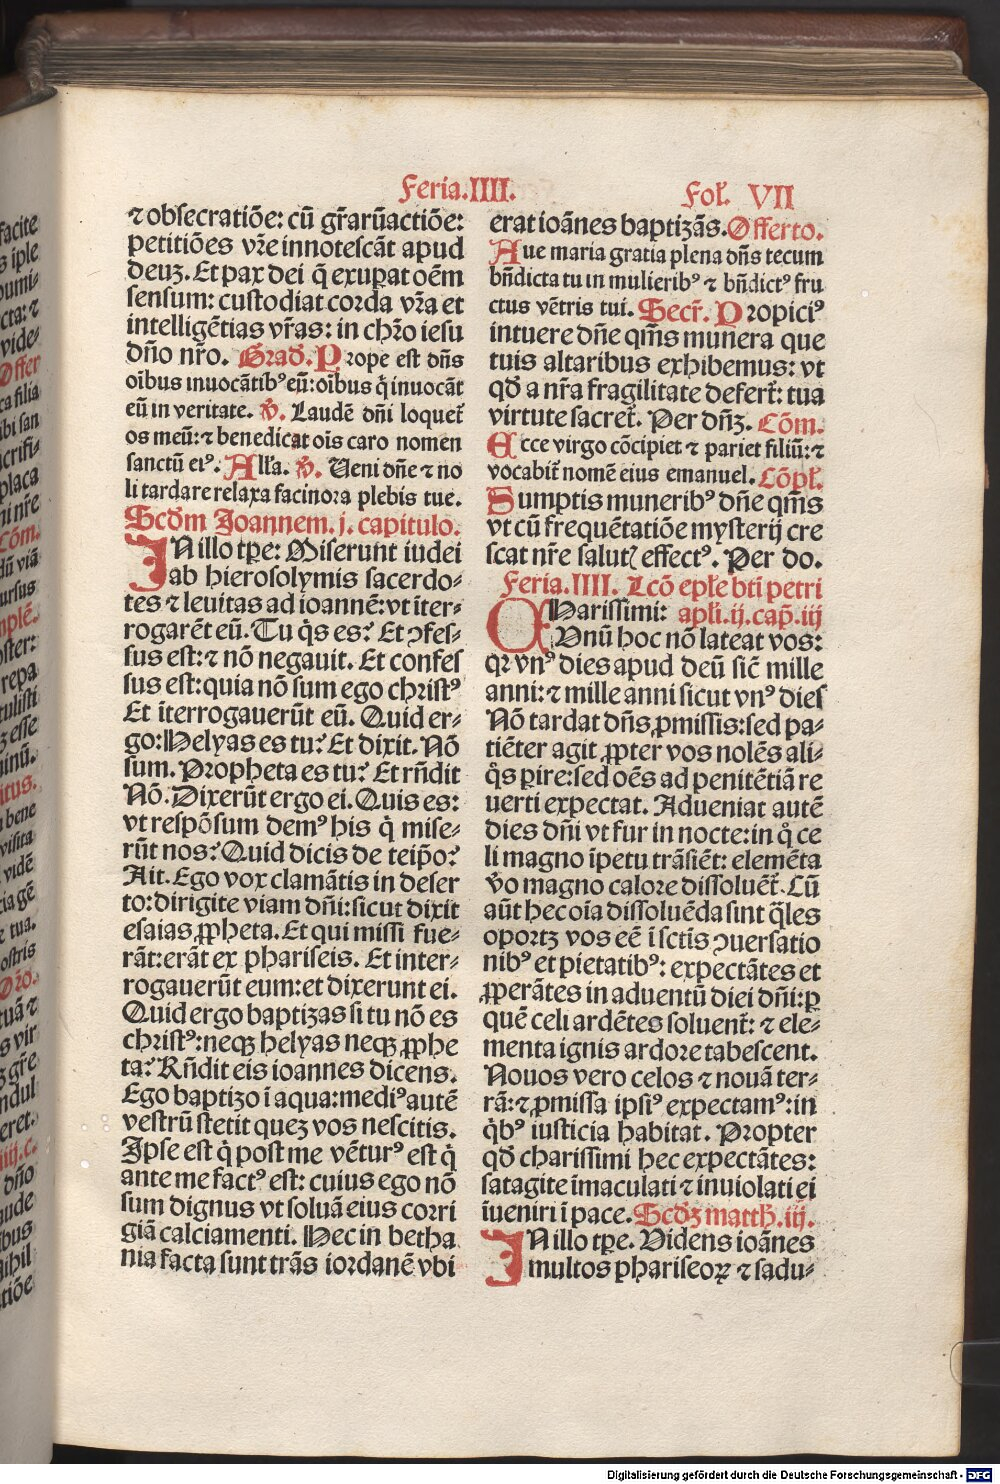 Feria.IIII.
Fol. VII
⁊ obsecratiõe: cũ gr̃arũactiõe:
petitiões vr̃e innotescãt apud
deuʒ. Et pax dei q̃ exuꝑat oẽm
sensum: custodiat corda vr̃a et
intelligẽtias vr̃as: in chr̃o iesu
dño nr̃o. Grad̃. Prope est dñs
oĩbus inuocãtibꝰ eũ: oĩbus q̃ inuocãt
eũ in veritate. ℣. Laudẽ dñi loquet̃
os meũ: ⁊ benedicat oĩs caro nomen
sanctũ eiꝰ. Alĺa. ℣. Ueni dñe ⁊ no
li tardare relaxa facinora plebis tue.
Scđm Joannem. j. capitulo.
IN illo tꝑe: Miserunt iudei
ab hierosolymis sacerdo⸗
tes ⁊ leuitas ad ioannẽ: vt ĩter⸗
rogarẽt eũ. Tu q̃s es? Et ꝯfes⸗
sus est: ⁊ nõ negauit. Et confes
sus est: quia nõ sum ego christꝰ
Et ĩterrogauerũt eũ. Quid er⸗
go: Helyas es tu? Et dixit. Nõ
sum. Propheta es tu? Et rñdit
Nõ. Dixerũt ergo ei. Quis es:
vt respõsum demꝰ his q̃ mise⸗
rũt nos? Quid dicis de teip̃o?
Ait. Ego vox clamãtis in deser
to: dirigite viam dñi: sicut dixit
esaias ꝓpheta. Et qui missi fue⸗
rãt: erãt ex phariseis. Et inter⸗
rogauerũt eum: et dixerunt ei.
Quid ergo baptizas si tu nõ es
christꝰ: neqʒ helyas neqʒ ꝓphe
ta? Rñdit eis ioannes dicens.
Ego baptizo ĩ aqua: mediꝰ autẽ
vestrũ stetit queʒ vos nescitis.
Ipse est q̃ post me vẽturꝰ est q̃
ante me factꝰ est: cuius ego nõ
sum dignus vt soluã eius corri
giã calciamenti. Hec in betha
nia facta sunt trãs iordanẽ vbi
erat ioãnes baptizãs. Offerto.
Aue maria gratia plena dñs tecum
bñdicta tu in mulieribꝰ ⁊ bñdictꝰ fru
ctus vẽtris tui. Secr̃. Propiciꝰ
intuere dñe qm̃s munera que
tuis altaribus exhibemus: vt
qđ a nr̃a fragilitate defert̃: tua
virtute sacret̃. Per dñʒ. Cõm.
Ecce virgo cõcipiet ⁊ pariet filiũ: ⁊
vocabit̃ nomẽ eius emanuel. Cõpl̃.
Sumptis muneribꝰ dñe qm̃s
vt cũ frequẽtatiõe mysterij cre
scat nr̃e salutꝭ effectꝰ. Per do.
Feria.IIII. Lcõ epl̃e bti petri
apl̃i. ij. cap̃. iij
CHarissimi:
Unũ hoc nõ lateat vos:
qꝛ vnꝰ dies apud deũ sic̃ mille
anni: ⁊ mille anni sicut vnꝰ dies
Nõ tardat dñs ꝓmissis: sed pa⸗
tiẽter agit ꝓpter vos nolẽs ali⸗
q̃s ꝑire: sed oẽs ad penitẽtiã re
uerti expectat. Adueniat autẽ
dies dñi vt fur in nocte: in q̊ ce
li magno ĩpetu trãsiẽt: elemẽta
v̊o magno calore dissoluẽt̃. Cũ
aũt hec oĩa dissoluẽda sint q̃les
oportʒ vos eẽ ĩ sctĩs ꝯuersatio
nibꝰ et pietatibꝰ: expectãtes et
ꝓperãtes in aduentũ diei dñi: ꝑ
quẽ celi ardẽtes soluent̃: ⁊ ele⸗
menta ignis ardore tabescent.
Nouos vero celos ⁊ nouã ter⸗
rã: ⁊ ꝓmissa ipsiꝰ expectamꝰ: in
q̃bꝰ iusticia habitat. Propter
qđ charissimi hec expectãtes:
satagite ĩmaculati ⁊ inuiolati ei
ĩueniri ĩ pace. Scđʒ matth. iij.
IN illo tꝑe. Videns ioãnes
multos phariseoꝝ ⁊ sadu⸗
Digitalisierung gefördert durch die Deutsche Forschungsgemeinschaft - DFG